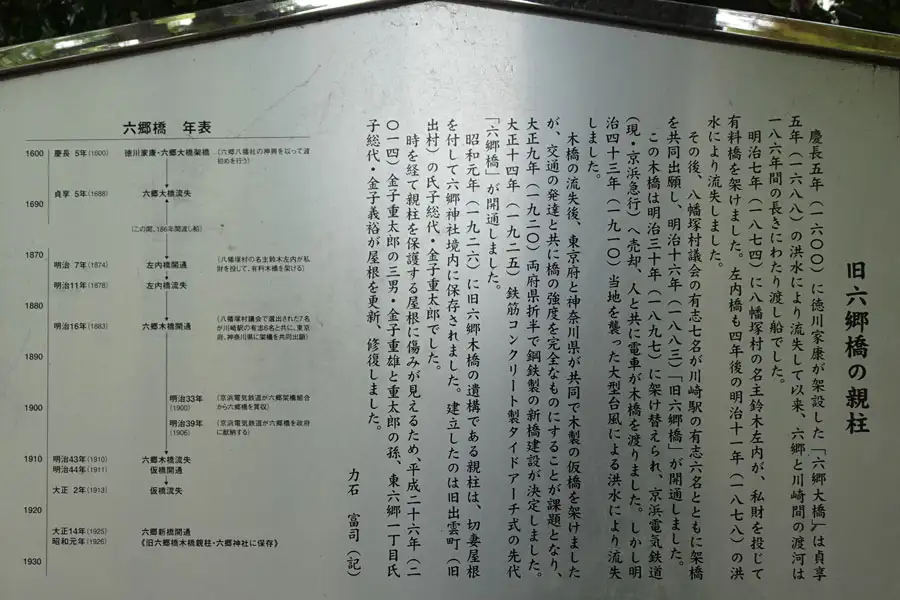 旧六郷橋の親柱
慶長五年（一六〇〇）に徳川家康が架設した「六郷大橋」は貞享
五年（一六八八）の洪水により流失して以来、六郷と川崎間の渡河は
一八六年間の長きにわたり渡し船でした。
明治七年（一八七四）に八幡塚村の名主鈴木左内が、私財を投じて
有料橋を架けました。左内橋も四年後の明治十一年（一八七八）の洪
水により流失しました。
その後、八幡塚村議会の有志七名が川崎駅の有志六名とともに架橋
を共同出願し、明治十六年（一八八三）「旧六郷橋」が開通しました。
この木橋は明治三十年（一八九七）に架け替えられ、京浜電気鉄道
（現・京浜急行）へ売却、人と共に電車が木橋を渡りました。しかし明
治四十三年（一九一〇）当地を襲った大型台風による洪水により流失
しました。
木橋の流失後、東京府と神奈川県が共同で木製の仮橋を架けました
が、交通の発達と共に橋の強度を完全なものにすることが課題となり、
大正九年（一九二〇）両府県折半で鋼鉄製の新橋建設が決定しました。
大正十四年（一九二五）鉄筋コンクリート製タイドアーチ式の先代
「六郷橋」が開通しました。
昭和元年（一九二六）に旧六郷木橋の遺構である親柱は、切妻屋根
を付して六郷神社境内に保存されました。建立したのは旧出雲町（旧
出村）の氏子総代・金子重太郎でした。
時を経て親柱を保護する屋根に傷みが見えるため、平成二十六年（二
〇一四）金子重太郎の三男・金子重雄と重太郎の孫、東六郷一丁目氏
子総代・金子義裕が屋根を更新、修復しました。
力石 富司（記）
六郷橋 年表
1600 慶長 5年(1600) 徳川家康・六郷大橋架橋 （六郷八幡社の神輿を以って渡
初めを行う）
貞享 5年(1688) 六郷大橋流失
1690
（この間、186年間渡し船）
1870
明治 7年(1874) 左内橋開通 （八幡塚村の名主鈴木左内が私
財を投じて、有料木橋を架ける）
明治11年(1878) 左内橋流失
1880
明治16年(1883) 六郷木橋開通 （八幡塚村議会で選出された7名
が川崎駅の有志6名と共に、東京
府、神奈川県に架橋を共同出願）
1890
明治33年
(1900) （京浜電気鉄道が六郷架橋組合
から六郷橋を買収）
1900
明治39年
(1906) （京浜電気鉄道が六郷橋を政府
に献納する）
1910 明治43年(1910) 六郷木橋流失
明治44年(1911) 仮橋開通
大正 2年(1913) 仮橋流失
1920
大正14年(1925) 六郷新橋開通
昭和元年(1926) 《旧六郷橋木橋親柱・六郷神社に保存》
1930